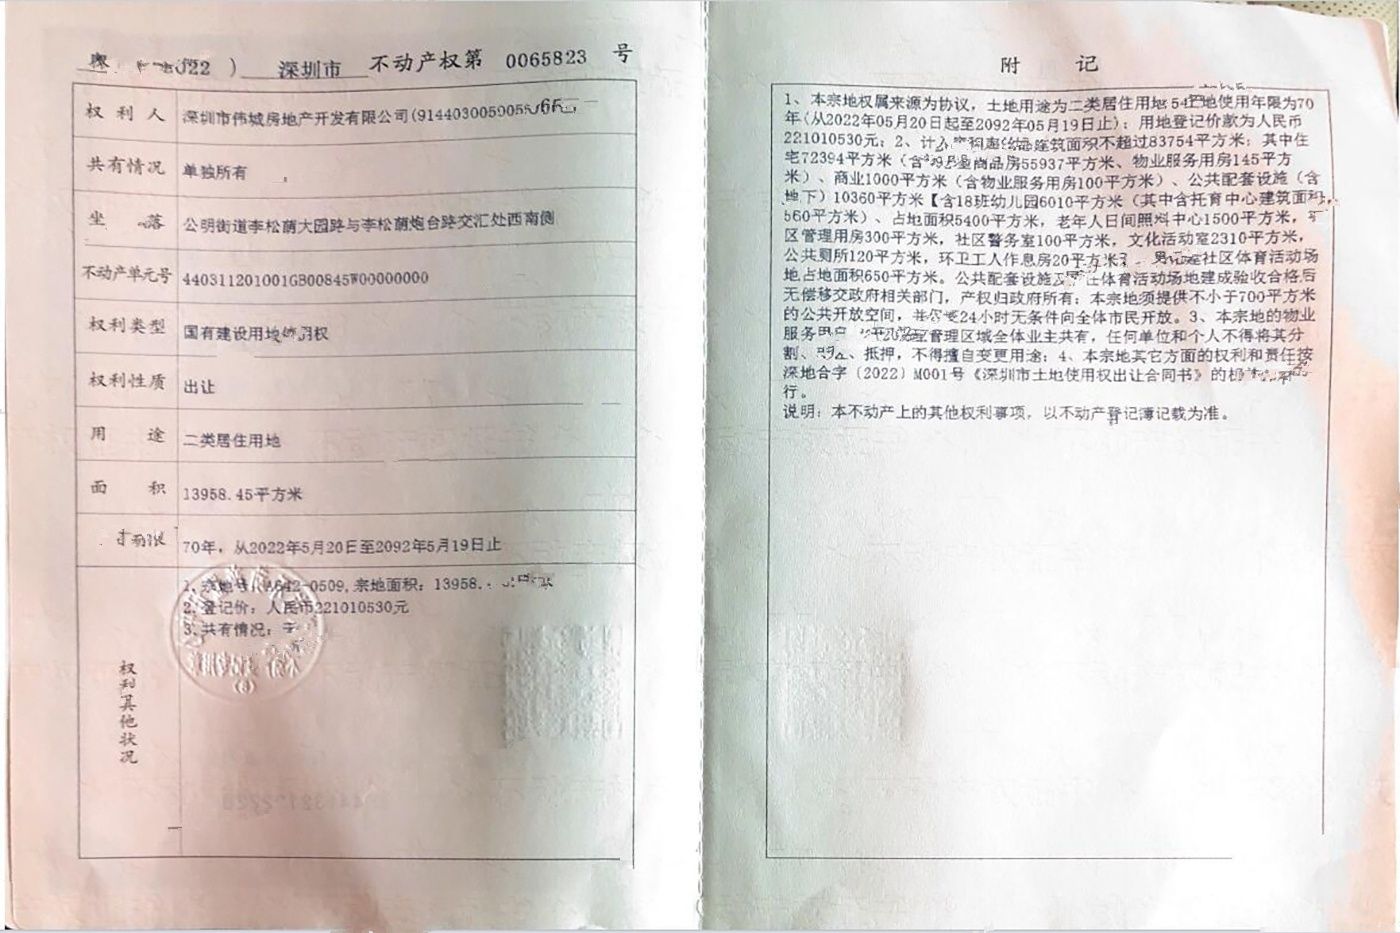 粤 022 ) 深圳市 不动产权第 0065823 号
权利人 深圳市伟城房地产开发有限公司(914403005905
共有情况 单独所有
坐落 公明街道李松蓢大园路与李松蓢炮台路交汇处西南侧
不动产单元号 440311201001GB00845W00000000
权利类型 国有建设用地使用权
权利性质 出让
用途 二类居住用地
面积 13958.45平方米
70年，从2022年5月20日至2092年5月19日止
权利其他状况
1、宗地号：A642-0509,宗地面积：13958.
2、登记价：人民币221010530元
3、共有情况：
附记
1、本宗地权属来源为协议，土地用途为二类居住用地 地使用年限为70
年(从2022年05月20日起至2092年05月19日止)；用地登记价款为人民币
221010530元；2、计 建筑面积不超过83754平方米；其中住
宅72394平方米（含 商品房55937平方米、物业服务用房145平方
米）、商业1000平方米（含物业服务用房100平方米）、公共配套设施（含
地下）10360平方米【含18班幼儿园6010平方米（其中含托育中心建筑面积
560平方米）、占地面积5400平方米，老年人日间照料中心1500平方米，
区管理用房300平方米，社区警务室100平方米，文化活动室2310平方米，
公共厕所120平方米，环卫工人作息房20平方米 社区体育活动场
地占地面积650平方米。公共配套设施及 体育活动场地建成验收合格后
无偿移交政府相关部门，产权归政府所有；本宗地须提供不小于700平方米
的公共开放空间，并 24小时无条件向全体市民开放。3、本宗地的物业
服务 管理区域全体业主共有，任何单位和个人不得将其分
割、 、抵押，不得擅自变更用途；4、本宗地其它方面的权利和责任按
深地合字（2022）M001号《深圳市土地使用权出让合同书》的
行。
说明：本不动产上的其他权利事项，以不动产登记簿记载为准。